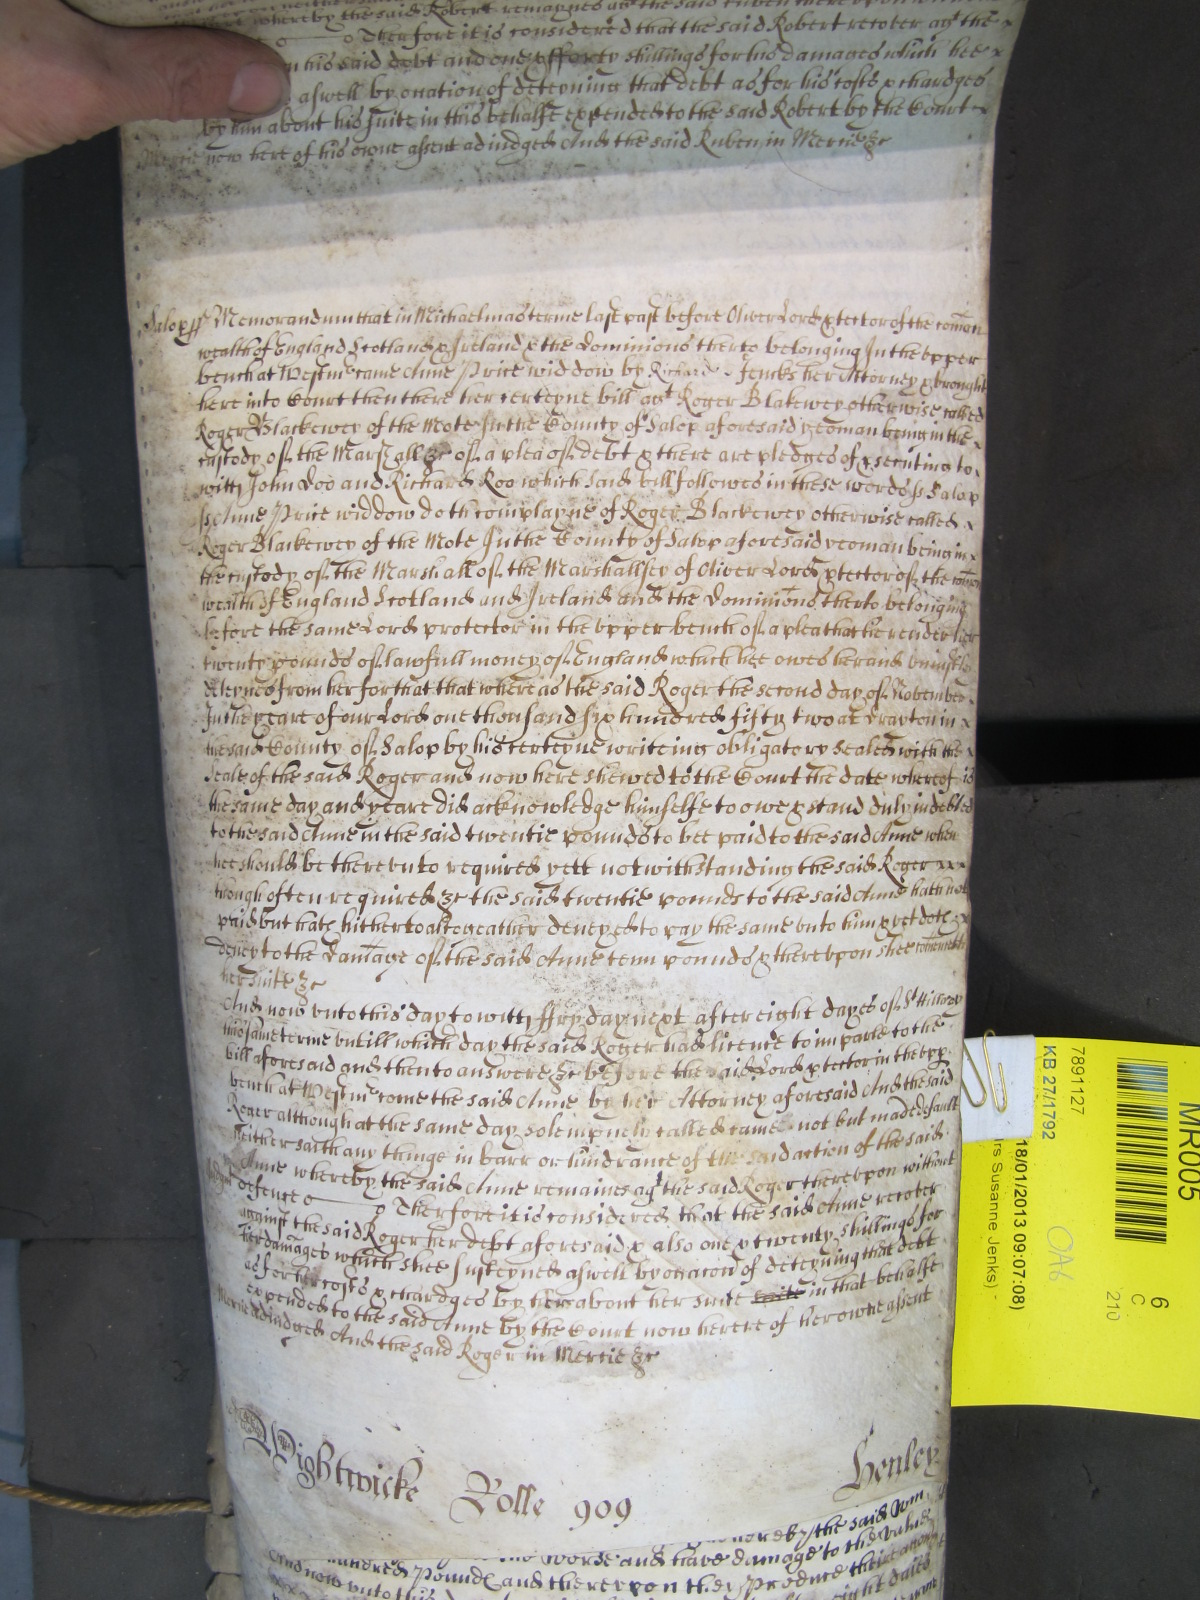 whereby the said Robert remaynes ag the said Ruben
Therfore it is considered that the said Robert recover ag the
his said debt and one & fforty shillings for his damages which hee
aswell by occation of deteyning that debt as for his costs & chardges
by him about his suite in this behalfe expended to the said Robert by the Court
Mercie now here of his owne assent adiudged And the said Ruben in Mercie &c
Salop ss Memorandum that in Michaelmas terme last past before Oliver Lord ptector of the comon
wealth of England Scotland & Ireland & the Dominions therto belonging In the vpper
bench at Westmr came Anne Price widdow by Richard Jencks her Attorney & brought
here into Court then there her certeyne bill agt Roger Blakewey otherwise called
Roger Blackewey of the Mote In the County of Salop aforesaid yeoman being in the
custody of the Marshall &c of a plea of debt & there are pledges of psecuting to
witt John Doo and Richard Roo which said bill followes in these words ss Salop
ss Anne Price widdow doth complayne of Roger Blackewey otherwise called
Roger Blackewey of the Mote In the County of Salop aforesaid yeoman being in
the custody of the Marshall of the Marshallsey of Oliver Lord ptector of the comon
wealth of England Scotland and Ireland and the Dominions therto belonging
before the same Lord protector in the vpper bench of a plea that he render her
twenty pounds of lawfull money of England which hee owes her and vniustly
deteynes from her for that that whereas the said Roger the second day of November
In the yeare of our Lord one thousand six hundred fifty two at Drayton in
the said County of Salop by his certeyne writeing obligatory sealed with the
seale of the said Roger and now here shewed to the Court the date whereof is
the same day and yeare did acknowledge himselfe to owe & stand duly indebted
to the said Anne in the said twentie pounds to bee paid to the said Anne when
hee should be therevnto required yett notwithstanding the said Roger
though often required &c the said twentie pounds to the said Anne hath not
paid but hath hitherto altogeather denyed to pay the same vnto him & yet doth
deney to the Damage of the said Anne tenn pounds & therevpon shee
her suite &c
And now vnto this day to witt ffryday next after eight dayes of St Hillary
this same terme vntill which day the said Roger had licence to imparle to the
bill aforesaid and then to answere &c before the said Lord ptector in the vpp
bench at Westmr come the said Anne by her Attorney aforesaid And the said
Roger although at the same day solempnely called came not but made default
Neither saith any thinge in barr or hindrance of the said action of the said
Anne whereby the said Anne remaines agt the said Roger therevpon without
defence Therfore it is considered that the said Anne recover
against the said Roger her debt aforesaid & also one & twenty shillings for
her damages which shee susteyned aswell by occacion of deteyning that debt
as for her costs & chardges by her about her suite in that behalfe
expended to the said Anne by the Court now here of her owne assent
Mercie adiudged And the said Roger in Mercie &c
Wightwicke Rolle 909 Henley
whereby the said
worse and have damage to the value
hundred pounds and therevpon they produce their
And now vnto this
MR005
6
C
210
7891127
KB 27/1792
18/01/2013 09:07:08)
rs Susanne Jenks) -
OA6